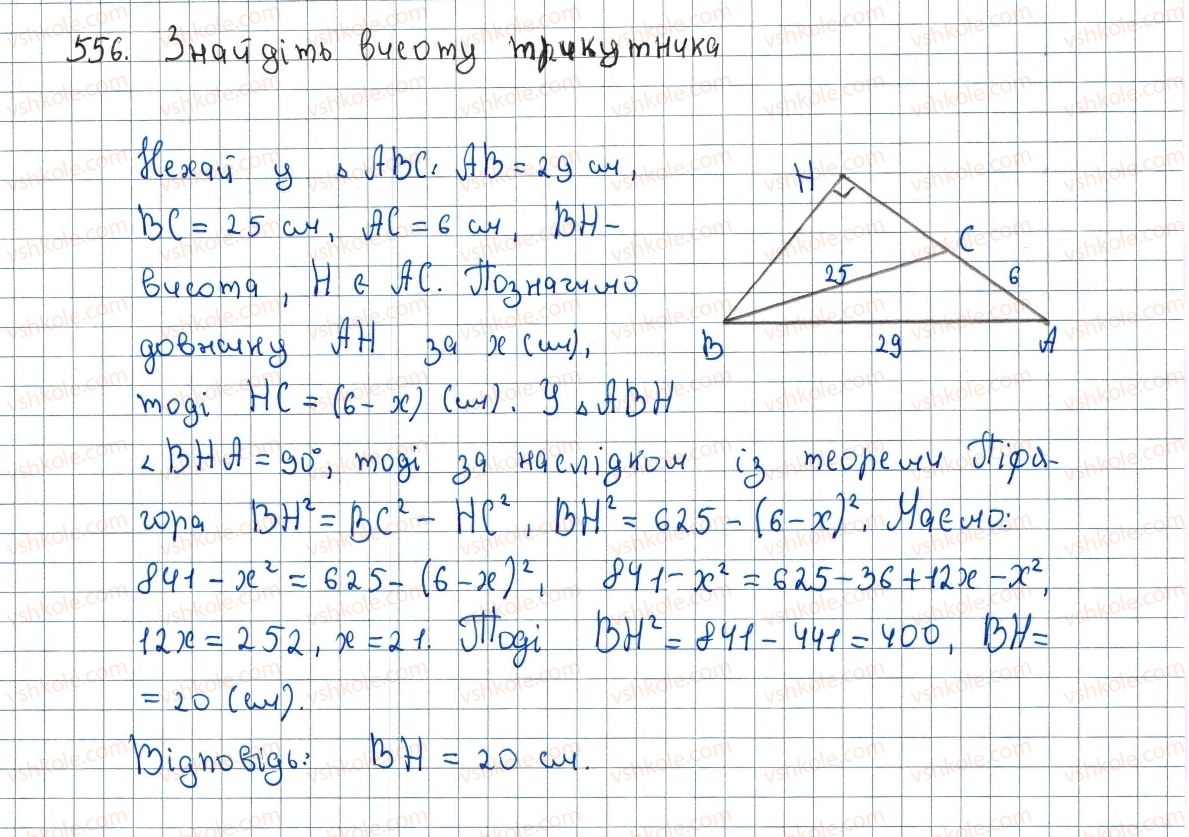 556. Знайдіть висоту трикутника
Нехай у △ ABC: AB = 29 см,
BC = 25 см, AC = 6 см, BH –
висота, H ∈ AC. Позначимо
довжину AH за x (см),
тоді HC = (6 - x) (см). У △ ABH
∠ BHA = 90°, тоді за наслідком із теореми Піфа-
гора BH² = BC² - HC², BH² = 625 - (6-x)². Маємо:
841 - x² = 625 - (6-x)², 841 - x² = 625 - 36 + 12x - x²,
12x = 252, x = 21. Тоді BH² = 841 - 441 = 400, BH =
= 20 (см).
Відповідь: BH = 20 см.
H
C
25
6
B
29
A
vshkole.com